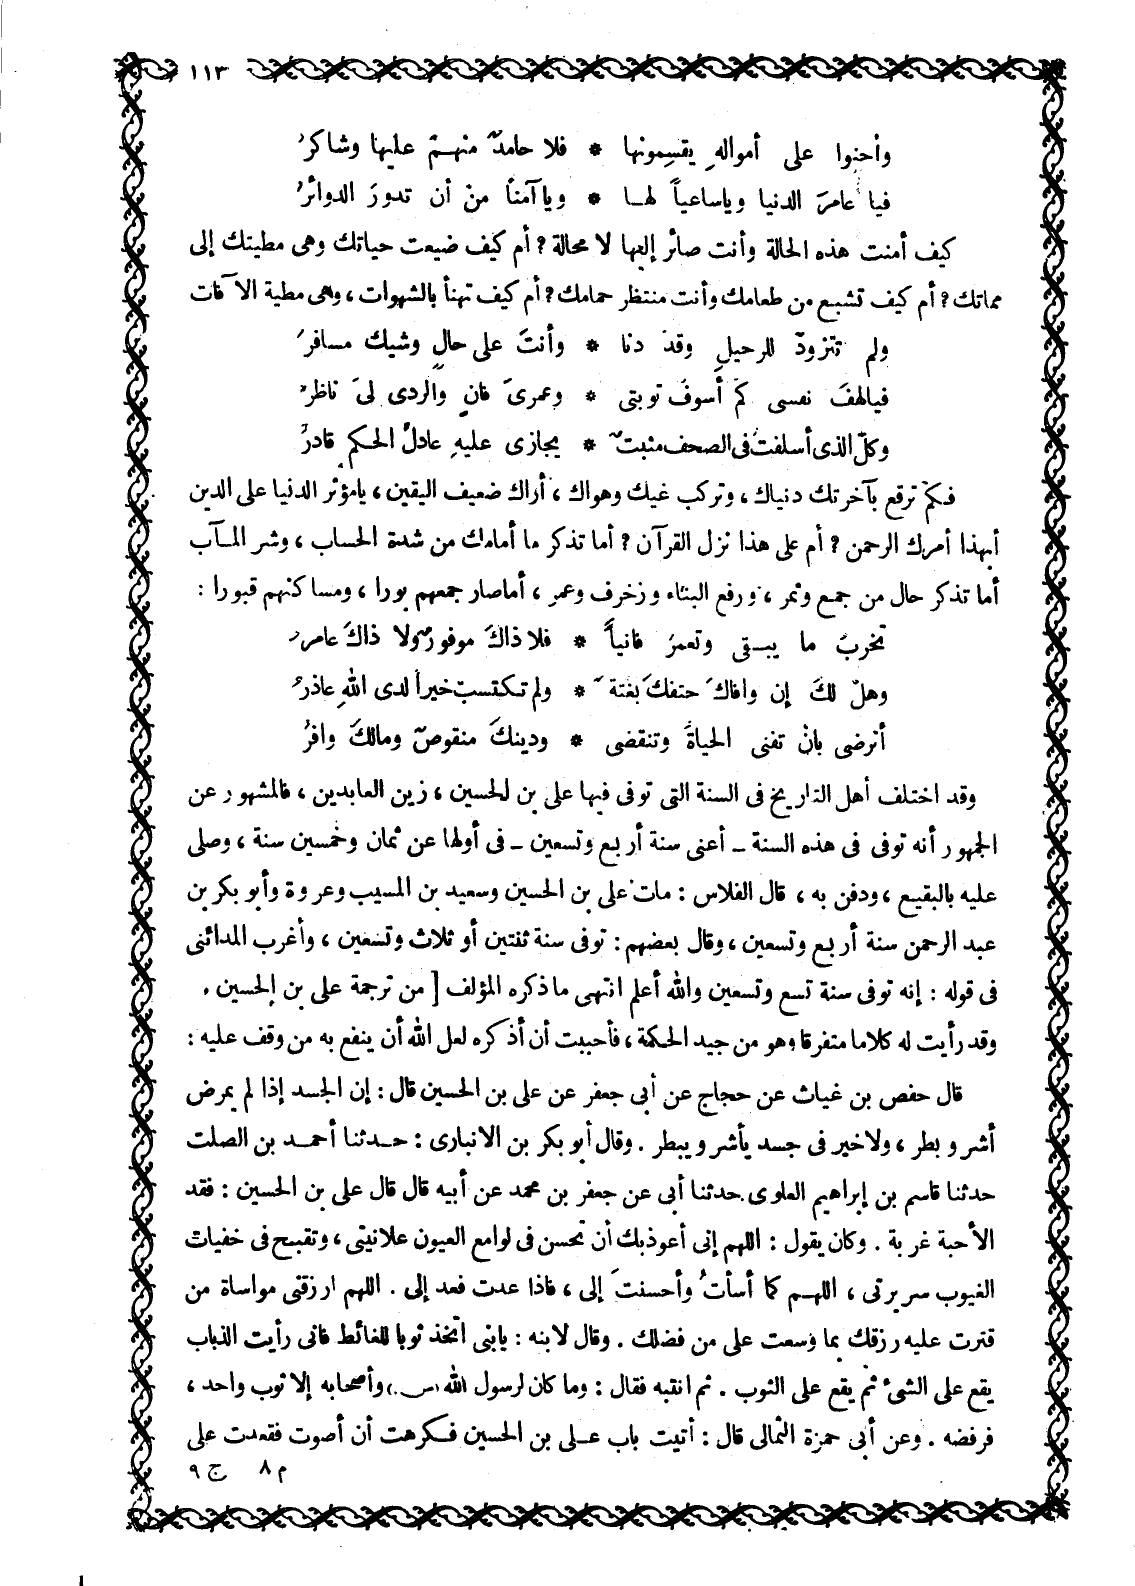 ١١٣
وأحنوا على أموالهِ يقسِمونها * فلا حامدٌ منهمْ عليها وشاكرُ
فيا عامرَ الدنيا وياساعياً لهـا * وياآمناً منْ أن تدورَ الدوائرُ
كيف أمنت هذه الحالة وأنت صائر إليها لا محالة ؟ أم كيف ضيعت حياتك وهى مطيتك إلى
مماتك ؟ أم كيف تشبع من طعامك وأنت منتظر حمامك ؟ أم كيف تهنأ بالشهوات ، وهى مطية الآفات
ولم تتزودْ للرحيلِ وقدْ دنا * وأنتَ على حالٍ وشيك مسافرُ
فيالهفَ نفسى كمْ أسوفَ توبتى * وعمرىَ فانٍ والردى لىَ ناظرُ
وكلّ الذى أسلفتُ فى الصحف مثبتٌ * يجازى عليهِ عادلُ الحكمِ قادرُ
فكم ترقع بآخرتك دنياك ، وتركب غيك وهواك ، أراك ضعيف اليقين ، يامؤثر الدنيا على الدين
أبهذا أمرك الرحمن ؟ أم على هذا نزل القرآن ؟ أما تذكر ما أمامك من شدة الحساب ، وشر المـآب
أما تذكر حال من جمع وثمر ، ورفع البناء وزخرف وعمر ، أما صار جمعهم بورا ، ومساكنهم قبورا :
تخربُ ما يبـقى وتعمرُ فانياً * فلا ذاكَ موفورٌ ولا ذاكَ عامرُ
وهلْ لكَ إن وافاكَ حتفكَ بغتةً * ولم تـكتسبْ خيراً لدى اللهِ عاذرُ
أترضى بانْ تفنى الحياةَ وتنقضى * ودينكَ منقوصٌ ومالكَ وافرُ
وقد اختلف أهل التاريخ فى السنة التى توفى فيها على بن الحسين ، زين العابدين ، فالمشهور عن
الجمهور أنه توفى فى هذه السنة ــ أعنى سنة أربع وتسعين ــ فى أولها عن ثمان وخمسين سنة ، وصلى
عليه بالبقيع ، ودفن به ، قال الفلاس : مات على بن الحسين وسعيد بن المسيب وعروة وأبو بكر بن
عبد الرحمن سنة أربع وتسعين ، وقال بعضهم : توفى سنة ثنتين أو ثلاث وتسعين ، وأغرب المدائنى
فى قوله : إنه توفى سنة تسع وتسعين والله أعلم انتهى ما ذكره المؤلف [ من ترجمة على بن الحسين .
وقد رأيت له كلاما متفرقا وهو من جيد الحكمة ، فأحببت أن أذكره لعل الله أن ينفع به من وقف عليه :
قال حفص بن غياث عن حجاج عن أبى جعفر عن على بن الحسين قال : إن الجسد إذا لم يمرض
أشر وبطر ، ولا خير فى جسد يأشر ويبطر . وقال أبو بكر بن الانبارى : حـدثنا أحمـد بن الصلت
حدثنا قاسم بن إبراهيم العلوى حدثنا أبى عن جعفر بن محمد عن أبيه قال قال على بن الحسين : فقد
الأحبة غربة . وكان يقول : اللهم إنى أعوذ بك أن تحسن فى لوامع العيون علانيتى ، وتقبح فى خفيات
الغيوب سريرتى ، اللهـم كما أسأتُ وأحسنتَ إلى ، فاذا عدت فعد إلى . اللهم ارزقنى مواساة من
قترت عليه رزقك بما وسعت على من فضلك . وقال لابنه : يابنى اتخذ ثوبا للغائط فانى رأيت الذباب
يقع على الشئ ثم يقع على الثوب . ثم انتبه فقال : وما كان لرسول الله (س.) وأصحابه إلا ثوب واحد ،
فرفضه . وعن أبى حمزة الثمالى قال : أتيت باب عـلى بن الحسين فـكرهت أن أصوت فقعدت على
م ٨ ج ٩